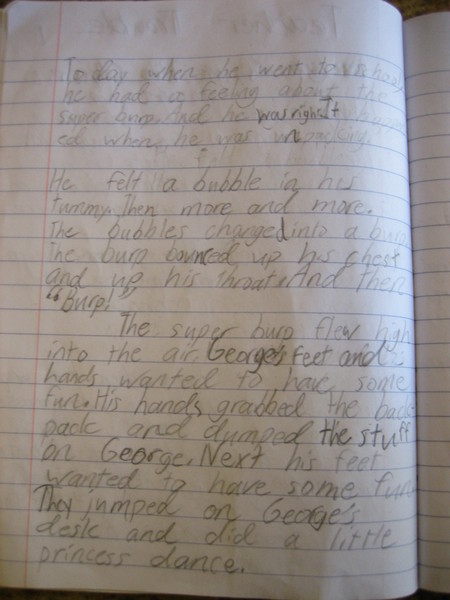 Today when he went to school
he had a feeling about the
super burp. And he was right. It
ed when he was unpacking.
He felt a bubble in his
tummy. Then more and more.
The bubbles changed into a burp.
The burp bounced up his chest
and up his throat. And then
"Burp!"
The super burp flew high
into the air. George's feet and his
hands wanted to have some
fun. His hands grabbed the back
pack and dumped the stuff
on George. Next his feet
wanted to have some fun
They jumped on George's
desk and did a little
princess dance.